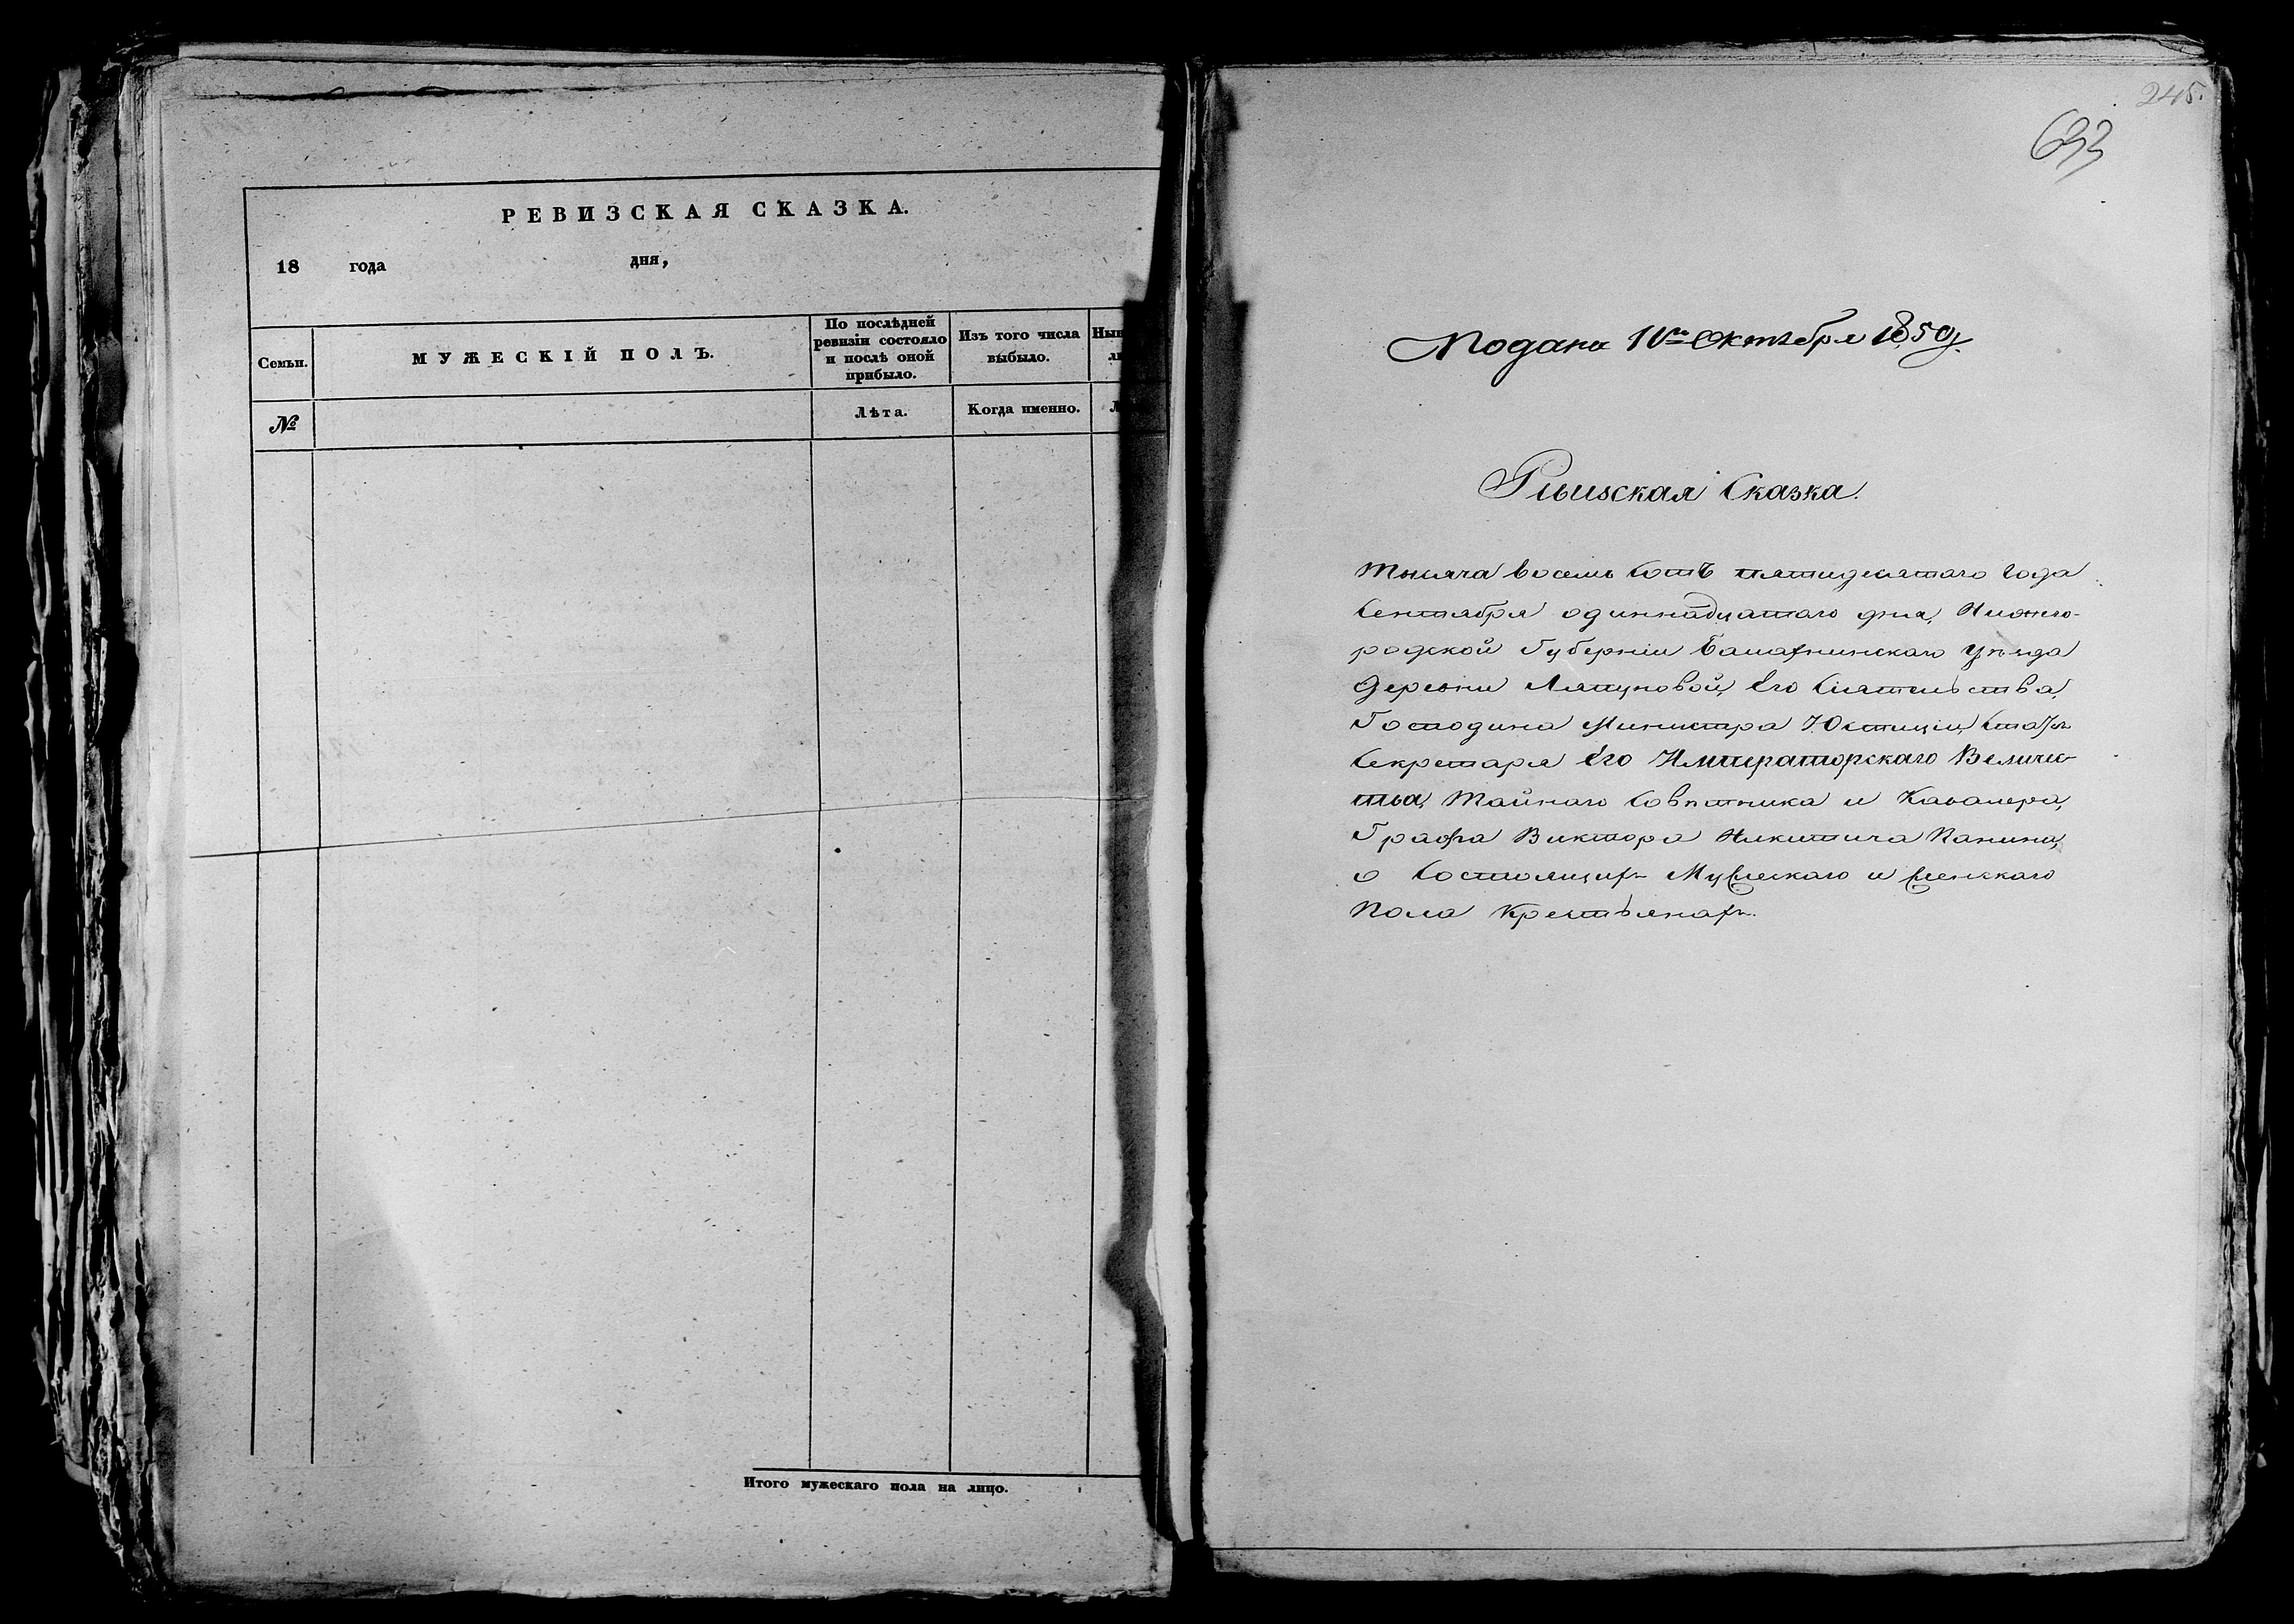 РЕВИЗСКАЯ СКАЗКА.
18 года дня,
Семьи.
МУЖЕСКІЙ ПОЛЪ.
По послѣдней
ревизіи состояло
и послѣ оной
прибыло.
Изъ того числа
выбыло.
№
Лѣта.
Когда именно.
Итого мужескаго пола на лицо.
245.
633
Подана 11го Октября 1850 г.
Ревизская Сказка.
Тысяча восемь сотъ пятидесятаго года
Сентября одиннадцатаго дня, Нижего-
родской Губерніи Балахнинскаго уѣзда
Деревни Ляпуновой, Его Сіятельства,
Господина Министра Юстиціи, Статъ
Секретаря Его Императорскаго Величес-
тва, Тайнаго Совѣтника и Кавалера,
Графа Виктора Никитича Панина,
о Состоящихъ Мужескаго и женскаго
пола крестьянахъ.